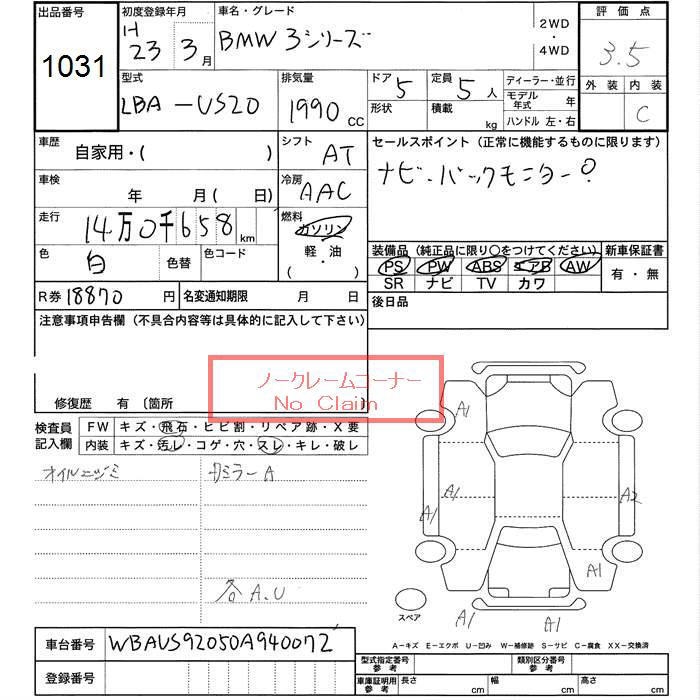 出品番号 初度登録年月 車名・グレード 2WD ・ 4WD 評価点
1031 H 23 3月 BMW 3シリーズ 3.5
型式 排気量 ドア 5 定員 5人 ディーラー・並行 外装 内装
LBA-US20 1990 CC 形状 積載 kg モデル年式 年 C
ハンドル 左・右
車歴 自家用・( ) シフト AT セールスポイント(正常に機能するものに限ります)
車検 年 月(日) 冷房 AAC ナビ・バックモニター
走行 14万0千658km 燃料 ガソリン 軽・油 ( ・ )
色 白 色替 色コード 装備品(純正品に限り○をつけてください) 新車保証書
PS PW ABS エアB AW 有・無
SR ナビ TV カワ
R券 18870円 名変通知期限 月 日 後日品
注意事項申告欄(不具合内容等は具体的に記入して下さい)
ノークレームコーナー
No Claim
修復歴 有〔箇所 〕
検査員記入欄 FW キズ・飛石・ヒビ割・リペア跡・X要
内装 キズ・汚レ・コゲ・穴・スレ・キレ・破レ
オイルニジミ
ミラーA
各A.U
A1
A1
A1
A2
A1
A1
A1
スペア
A-キズ E-エクボ U-凹み W-補修跡 S-サビ C-腐食 XX-交換済
車台番号 WBAUS92050A940072
登録番号
型式指定番号 参考 類別区分番号 参考
車庫証明用 参考 長さ cm 幅 cm 高さ cm